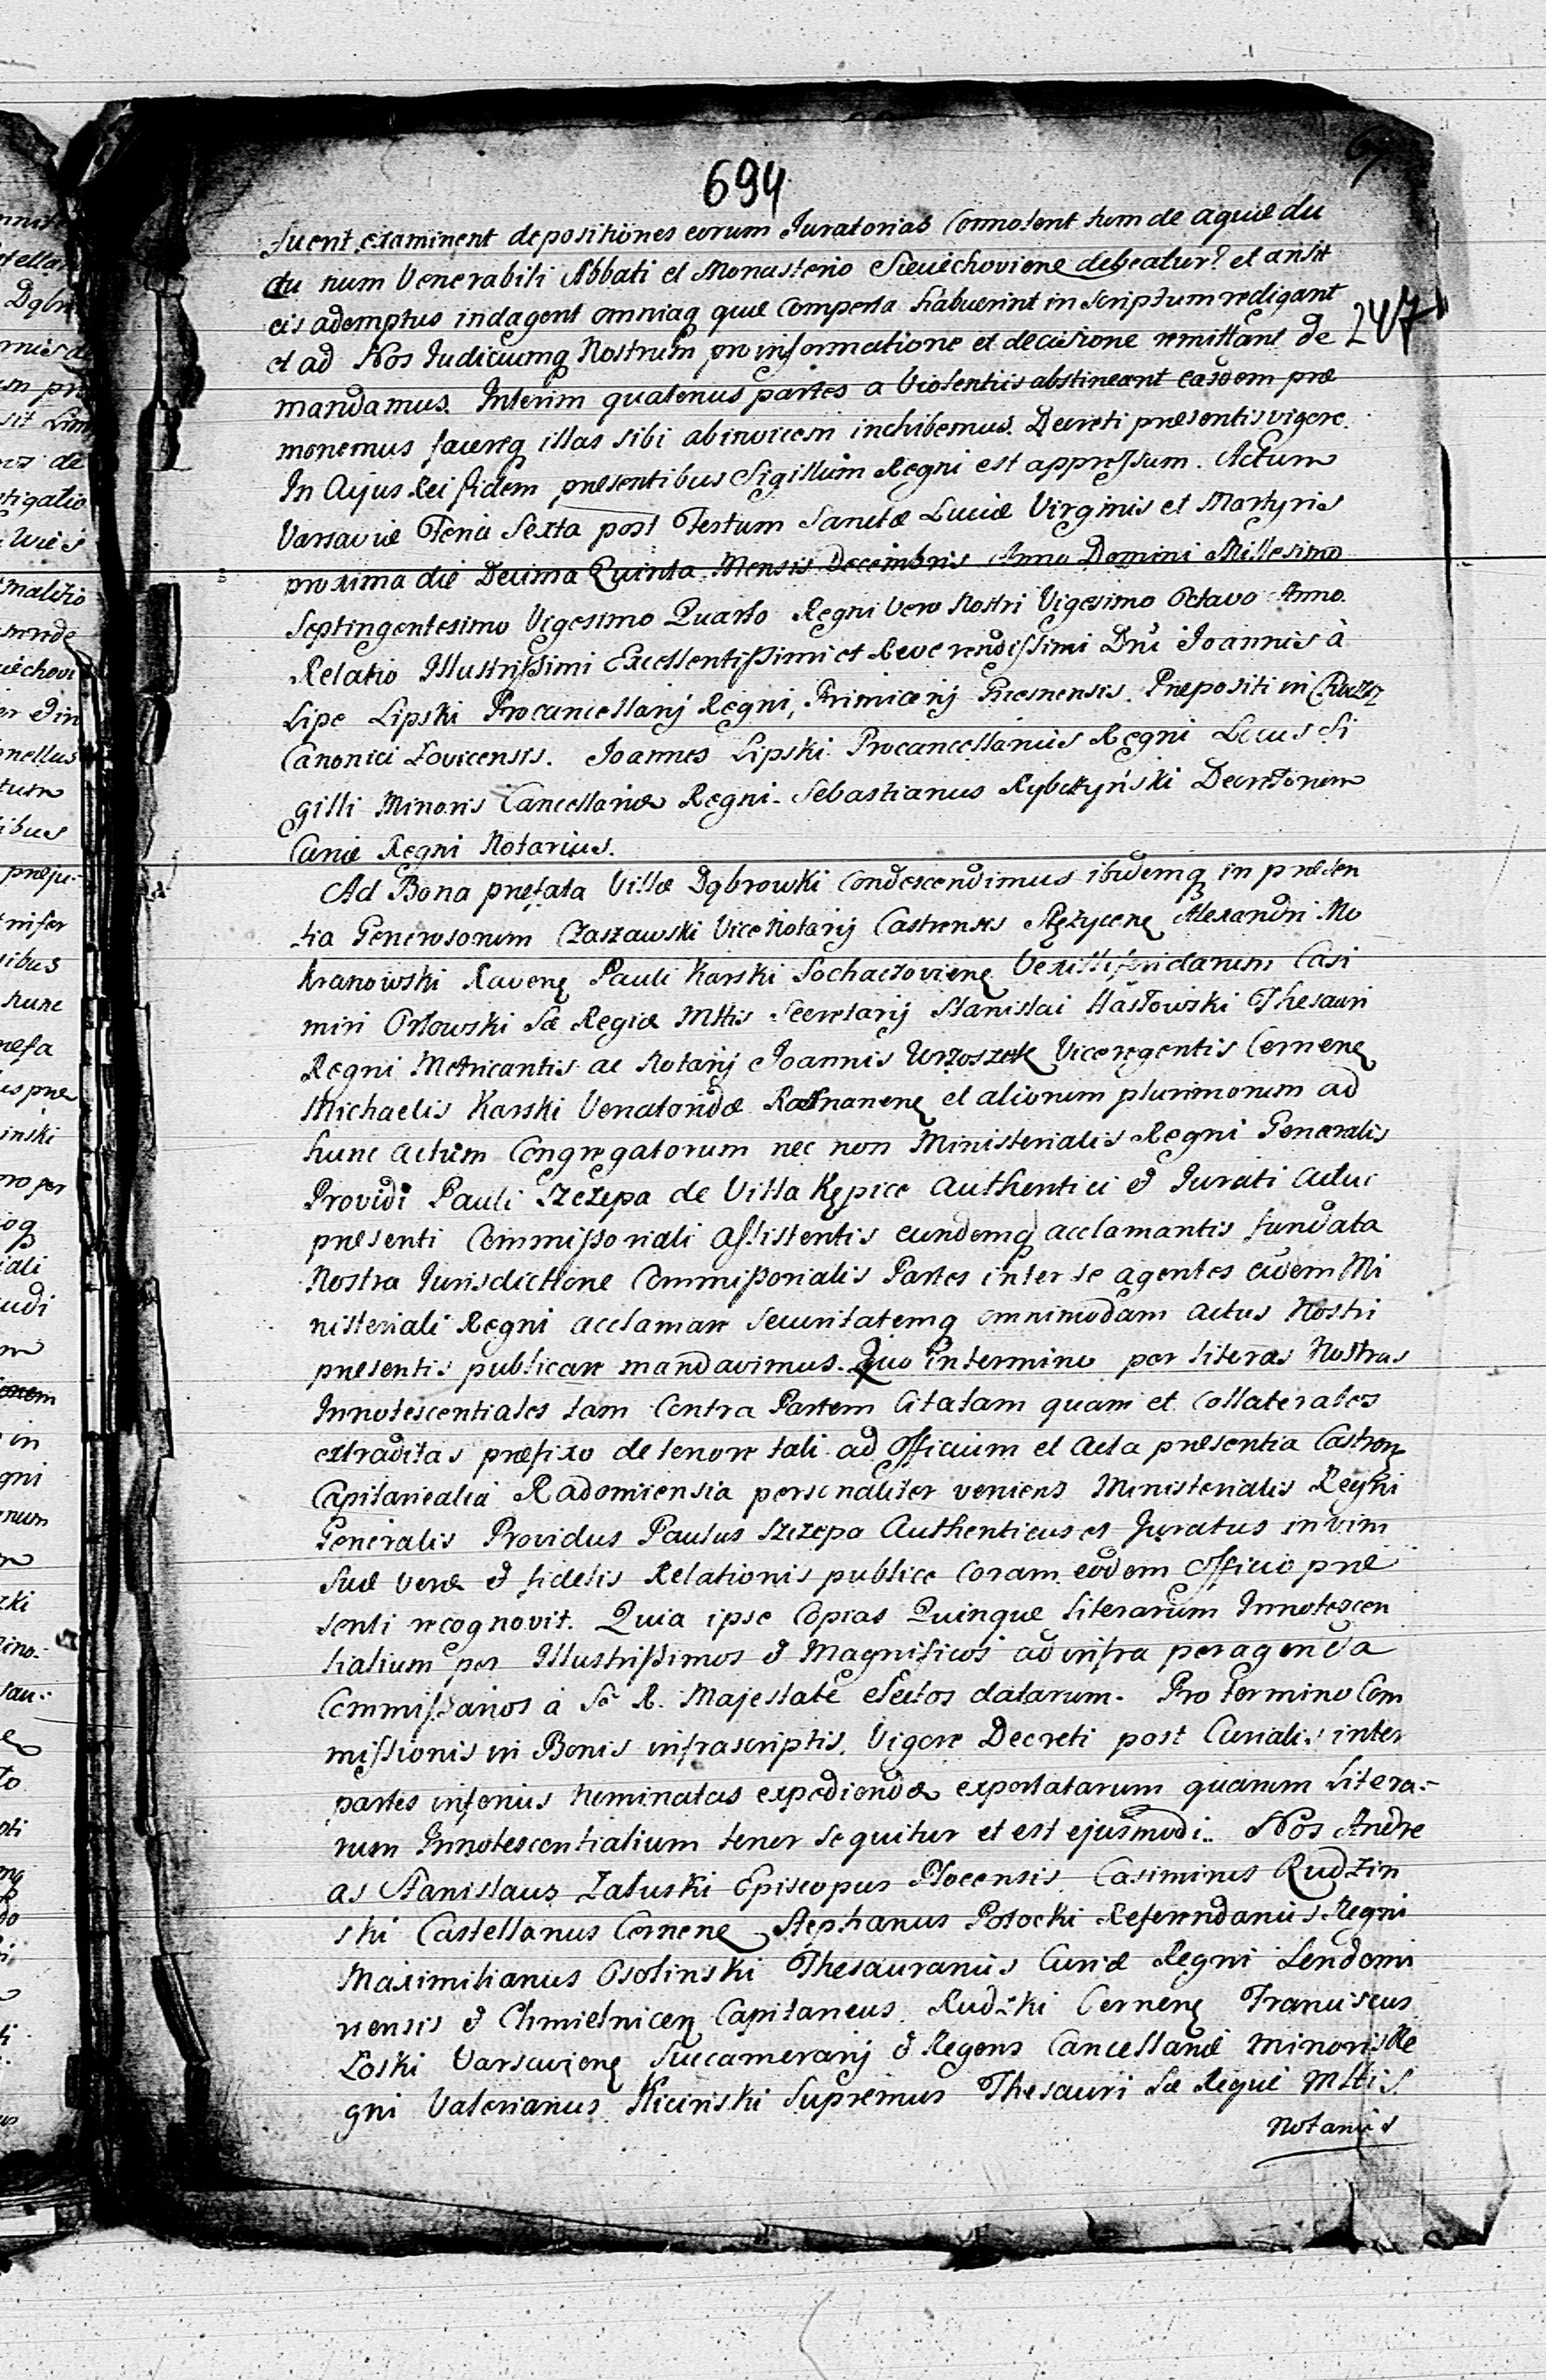 694
fuerit examinent depositiones eorum Iuratorias Connotent tum de aquæ du
ctu num Venerabili Abbati et Monasterio Sieciechoviene debeatur? et an sit
eis ademptus indagent omniaq quæ Comperta habuerint in Scriptum redigant
247
et ad Nos Iudiciumq Nostrum pro informatione et decisione remittant de
mandamus. Interim quatenus partes a Violentiis abstineant easdem præ
monemus facereq illas sibi ab invicem inhibemus. Decreti præsentis vigore.
In Cujus Rei fidem præsentibus Sigillum Regni est appressum. Actum
Varsaviæ Feria Sexta post Festum Sanctæ Luciæ Virginis et Martyris
proxima die Decima Quinta Mensis Decembris Anno Domini Millesimo
Septingentesimo Vigesimo Quarto Regni Vero Nostri Vigesimo Octavo Anno.
Relatio Illustrissimi Excellentissimi et Reverendissimi Dni Joannis à
Lipe Lipski Procancellarij Regni, Primicerij Gnesnensis. Præpositi in
Canonici Lovicensis. Joannes Lipski Procancellarius Regni Locus Si
gilli Minoris Cancellariæ Regni. Sebastianus Rybczyński Decretorum
Curiæ Regni Notarius.
Ad Bona præfata Villæ Dąbrowki Condescendimus ibidemq in præsen
tia Generosorum Czaszawski Vice Notarij Castrensis Stężycen Alexandri Mo
kranowski Ravenę Pauli Karski Sochaczovienę Vexilliferidarum Casi
miri Orłowski Sæ Regiæ Mttis Secretarij Stanislai Hasłowski Thesauri
Regni Metricantis ac Notarij Joannis Wrzoszek Viceregentis Cernenę
Michaelis Karski Venatoridæ et aliorum plurimorum ad
hunc actum Congregatorum nec non Ministerialis Regni Generalis
Providi Pauli Szczepa de Villa Kępice Authentici & Iurati actui
præsenti Commissoriali assistentis eundemq acclamantis fundata
Nostra Iurisdictione Commissorialis Partes inter se agentes eidem Mi
nisteriali Regni acclamare Securitatemq omnimodam actus Nostri
præsentis publicare mandavimus. Quo in termino per literas Nostras
Innotescentiales tam Contra Partem Citatam quam et Collaterales
extraditas præfixo de tenore tali. ad Officium et Acta præsentia Castren
Capitanealia Radomiensia personaliter veniens Ministerialis Regni
Generalis Providus Paulus Szczepa Authenticus et Iuratus in vim
Suæ veræ & fidelis Relationis publice Coram eodem Officio præ
senti recognovit. Quia ipse Copias Quinque literarum Innotescen
tialium per Illustrissimos & Magnificos ad infra peragenda
Commissarios à Sa R. Majestate electos datarum. Pro termino Com
missionis in Bonis infrascriptis. Vigore Decreti post Curialis inter
partes inferius Nominatas expediendæ exportatarum quarum Litera=
rum Innotescentialium tenor Sequitur et est ejusmodi.. Nos Andre
as Stanislaus Załuski Episcopus Plocensis. Casimirus Rudzin
ski Castellanus Cernenę Stephanus Potocki Referendarius Regni
Maximilianus Osolinski Thesaurarius Curiæ Regni Sendomi
riensis & Chmielnicen Capitaneus. Rudzki Cernenę Franciscus
Łoski Varsavienę Succamerarij & Regens Cancellariæ Minoris Re
gni Valerianus Kicinski Supremus Thesauri Sæ Regiæ Mttis
Notarius